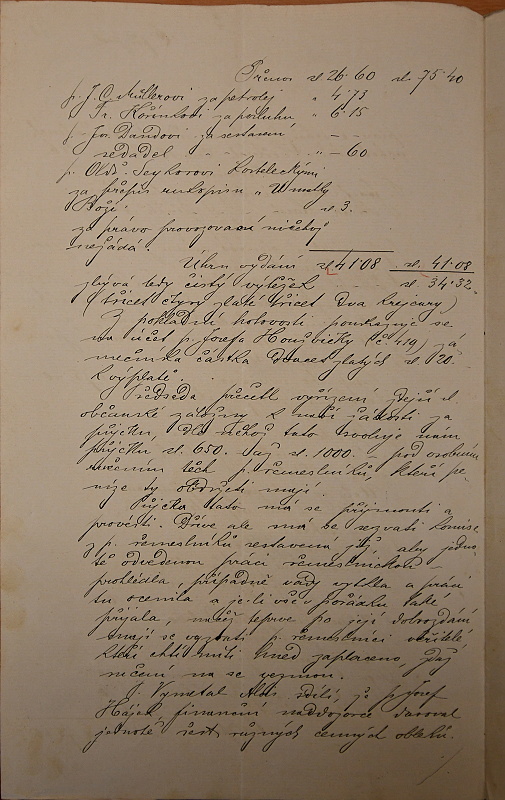 Přenos zl. 26·60 zl. 75·40
p. J. C. Müllerovi za petrolej " 4·73
" Fr. Kořínkovi za posluhu " 6·15
p. Jos. Dandovi za sestavení
sedadel " —60
p. Old. Sýkorovi Kosteleckými
za přepis rukopisu "
Boží zl. 3.
za právo provozovací ničehož
nežádá.
Úhrn vydání zl. 41·08 zl. 41·08
zbývá tedy čistý výtěžek zl. 34·32.
(třicet čtyry zlaté třicet dva krejcary)
Z pokladní hotovosti poukazuje se
na účet p. Josefa (č. 419) zá
mečníka částka dvacet zlatých zl. 20.
k výplatě.
Předseda přečetl vyřízení zdejší sl.
občanské záložny k naší žádosti za
půjčku. Dle něhož tato svoluje nám
půjčku zl. 650. až zl. 1000. – pod osobním
ručením těch p. řemeslníků, kteří pe-
níze ty obdržeti mají.
Půjčka tato má se přijmouti a
provésti. Dříve ale má se sezvati komise
z p. řemeslníků sestavená jež, aby jedno
tě odvedenou práci řemeslnickou
prohlédla, případně vady vytkla a práci
tu ocenila a je-li vše v pořádku také
přijala, načež teprve po její dobrozdání
mají se vyzvati p. řemeslníci věřitelé
kteří chtí míti hned zaplaceno, zdaž
ručení na se vezmou.
J. Vymetal sdílí, že p. Josef
Hájek, finanční naddozorce daroval
jednotě šest různých cenných obleků.